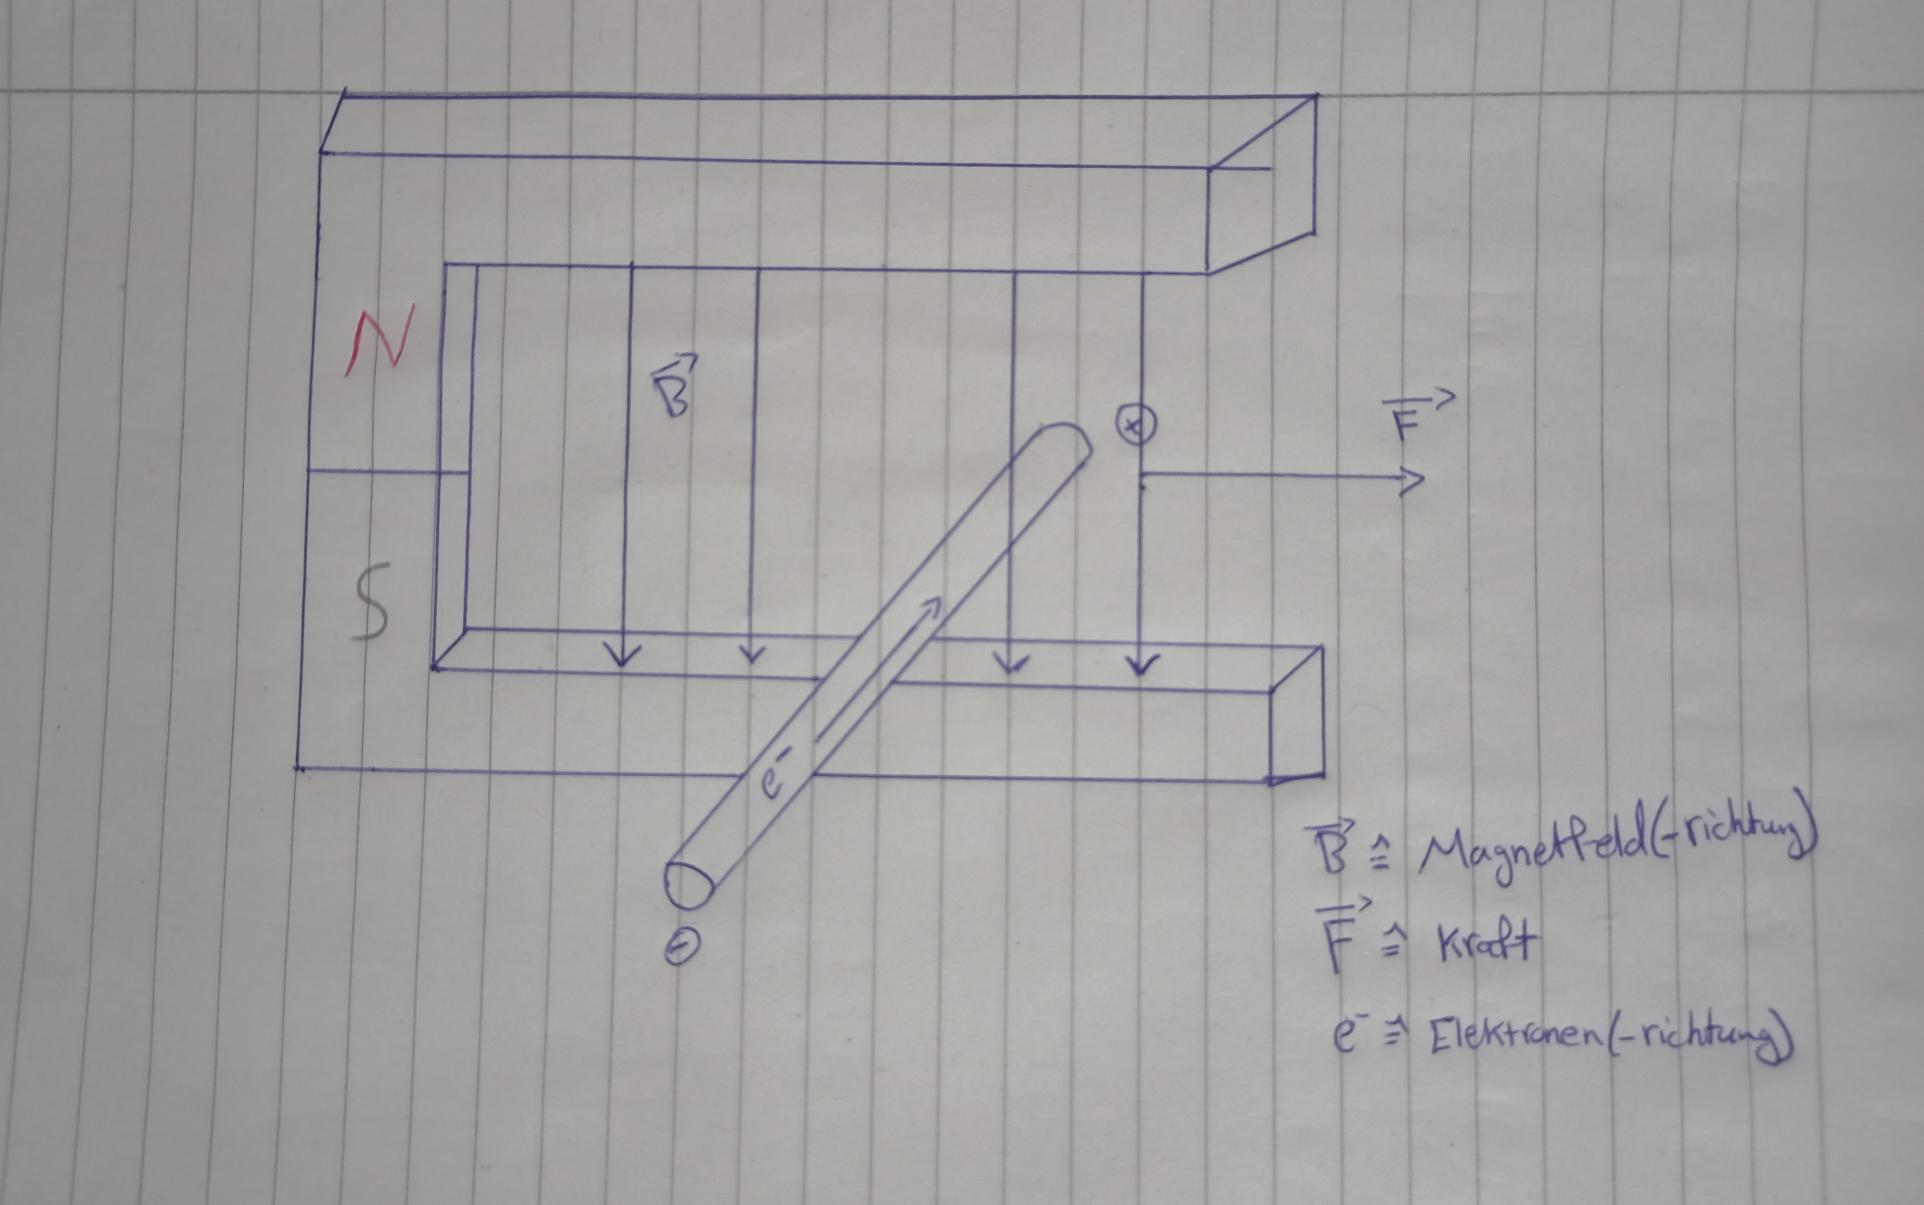 N
B
+
F
S
e⁻
-
B ≙ Magnetfeld(-richtung)
F ≙ Kraft
e⁻ ≙ Elektronen(-richtung)